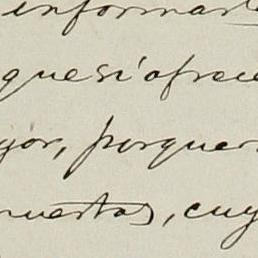 informar
que si ofrece
yor, porque
uestas, cuy